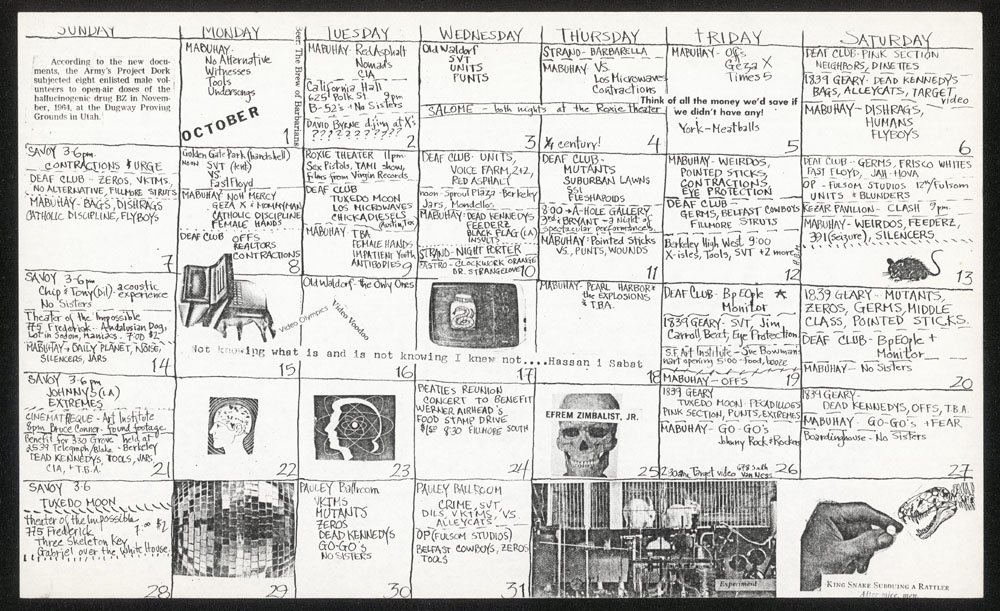 SUNDAY
MONDAY
TUESDAY
WEDNESDAY
THURSDAY
FRIDAY
SATURDAY
According to the new docu-
ments, the Army's Project Dork
subjected eight enlisted male vol-
unteers to open-air doses of the
hallucinogenic drug BZ in Novem-
ber, 1964, at the Dugway Proving
Grounds in Utah.
MABUHAY-
No Alternative
Witnesses
Tools
Undersongs
OCTOBER
1
Beer: The Brew of Barbarians
MABUHAY- Red Asphalt
Nomads
CIA
California Hall
625 Polk St. 9pm
B-52's + No Sisters
DAVID BYRNE djing at X's
????????????
2
Old Waldorf
SVT
UNITS
PUNTS
SALOME - both nights at the Roxie Theater
3
STRAND- BARBARELLA
MABUHAY VS.
Los Microwaves
Contractions
¼ century!
4
MABUHAY- Offs
Geza X
Times 5
Think of all the money we'd save if
we didn't have any!
York-Meatballs
5
DEAF CLUB- PINK SECTION
NEIGHBORS, DINETTES
1839 GEARY- DEAD KENNEDYS
BAGS, ALLEYCATS, TARGET
video
MABUHAY- DISHRAGS,
HUMANS
FLYBOYS
6
SAVOY 3-6pm.
CONTRACTIONS & URGE
DEAF CLUB - ZEROS, VKTMS,
NO ALTERNATIVE, FILLMORE STRUTS
MABUHAY- BAGS, DISHRAGS
CATHOLIC DISCIPLINE, FLYBOYS
7
Golden Gate Park (handshell)
NOON SVT (tent)
VS.
Fast Floyd
MABUHAY NOH MERCY
GEZA X
CATHOLIC DISCIPLINE
FEMALE HANDS
DEAF CLUB OFFS
REACTORS
CONTRACTIONS
8
ROXIE THEATER 11pm
Sex Pistols, TAMI show,
films from Virgin Records
DEAF CLUB
TUXEDO MOON
LOS MICROWAVES
CHICKADIESELS
(Austin, Tex)
MABUHAY- TBA
FEMALE HANDS
IMPATIENT Youth
ANTIBODIES
9
DEAF CLUB- UNITS,
VOICE FARM, 2+2,
RED ASPHALT
noon- Sproul Plaza - Berkeley
Jars, Mondellos
MABUHAY- DEAD KENNEDYS
FEEDERZ
BLACK FLAG (LA)
INSULTS
STRAND- NIGHT PORTER
CASTRO- CLOCKWORK ORANGE
DR. STRANGELOVE
10
DEAF CLUB-
MUTANTS
SUBURBAN LAWNS
SSI
FLESHAPOIDS
8:00 → A-HOLE GALLERY,
3rd & BRYANT - a night of
spectacular performances.
MABUHAY- Pointed Sticks
VS., PUNTS, WOUNDS
11
MABUHAY- WEIRDOS,
POINTED STICKS,
CONTRACTIONS,
EYE PROTECTION
DEAF CLUB-
GERMS, BELFAST COWBOYS
FILLMORE STRUTS
Berkeley High West 9:00
X-isles, Tools, SVT +2 more
12
DEAF CLUB - GERMS, FRISCO WHITES
FAST FLOYD, JAH-HOVA
OP - FULSOM STUDIOS 12th/Fulsom
UNITS & BLUNDERS
KEZAR PAVILION- CLASH 9pm.
MABUHAY- WEIRDOS, FEEDERZ,
391 (Seizure), SILENCERS
13
SAVOY 3-6pm
Chip & Tony (Dil)- acoustic
experience
No Sisters
Theater of the Impossible
775 Frederick - Andalusian Dog,
Lot in Sodom, Maniacs. 7:00 $2
MABUHAY- DAILY PLANET, NOISE,
SILENCERS, JARS
14
15
Old Waldorf- the Only Ones
Video Olympics
Video Voodoo
16
Not knowing what is and is not knowing I knew not....Hassan i Sabat
17
MABUHAY- PEARL HARBOR &
the EXPLOSIONS
& TBA.
18
DEAF CLUB- BpEOple
Monitor
1839 GEARY- SVT, Jim
Carroll Beat, Eye Protection
S.F. Art Institute - Sue Bowman
hart opening 5:00 - food, booze
MABUHAY- OFFS
19
1839 GEARY- MUTANTS,
ZEROS, GERMS, MIDDLE
CLASS, POINTED STICKS.
DEAF CLUB- BpEople +
Monitor
MABUHAY- No Sisters
20
SAVOY 3-6pm
JOHNNYS (LA)
EXTREMES
CINEMATHEQUE - Art Institute
8pm Bruce Conner- found footage
Benefit for 330 Grove held at
2539 Telegraph/Blake - Berkeley
DEAD KENNEDYS, TOOLS, JARS,
CIA, + T.B.A.
21
22
23
BEATLES REUNION
CONCERT TO BENEFIT
WERNER AIRHEAD'S
FOOD STAMP DRIVE
8:30 FILLMORE SOUTH
24
EFREM ZIMBALIST, JR.
25
1839 GEARY
TUXEDO MOON- PECADILLOES
PINK SECTION, PUNTS, EXTREMES
MABUHAY- GO-GO's
Johnny Rock & Rocker
2:30am Target video 678 South
Van Ness
26
1839 GEARY-
DEAD KENNEDYS, OFFS, T.B.A.
MABUHAY- GO-GO's + FEAR
Boardinghouse - No Sisters
27
SAVOY 3-6
TUXEDO MOON
theater of the Impossible
775 Frederick 7:00 $2
Three Skeleton Key,
Gabriel over the White House.
28
29
PAULEY Ballroom
VKTMS
MUTANTS
ZEROS
DEAD KENNEDYS
GO-GO's
NO SISTERS
30
PAULEY BALLROOM
CRIME, SVT,
DILS, VKTMS, VS,
ALLEYCATS
OP (FULSOM STUDIOS)
BELFAST COWBOYS, ZEROS
TOOLS
31
Experiment
KING SNAKE SUBDUING A RATTLER
After mice, men.